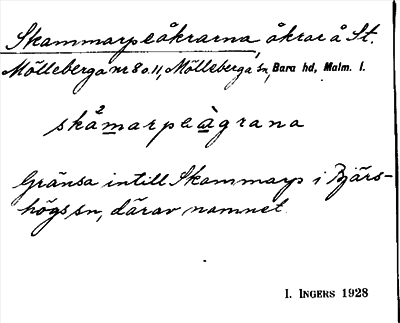 Skammarpeåkrarna, åkrar å St.
Mölleberga nr 8 o. 11, Mölleberga sn, Bara hd, Malm. l.
skå²marpeàgrana
Gränsa intill Skammarp i Bjärs-
högs sn, därav namnet.
I. INGERS 1928